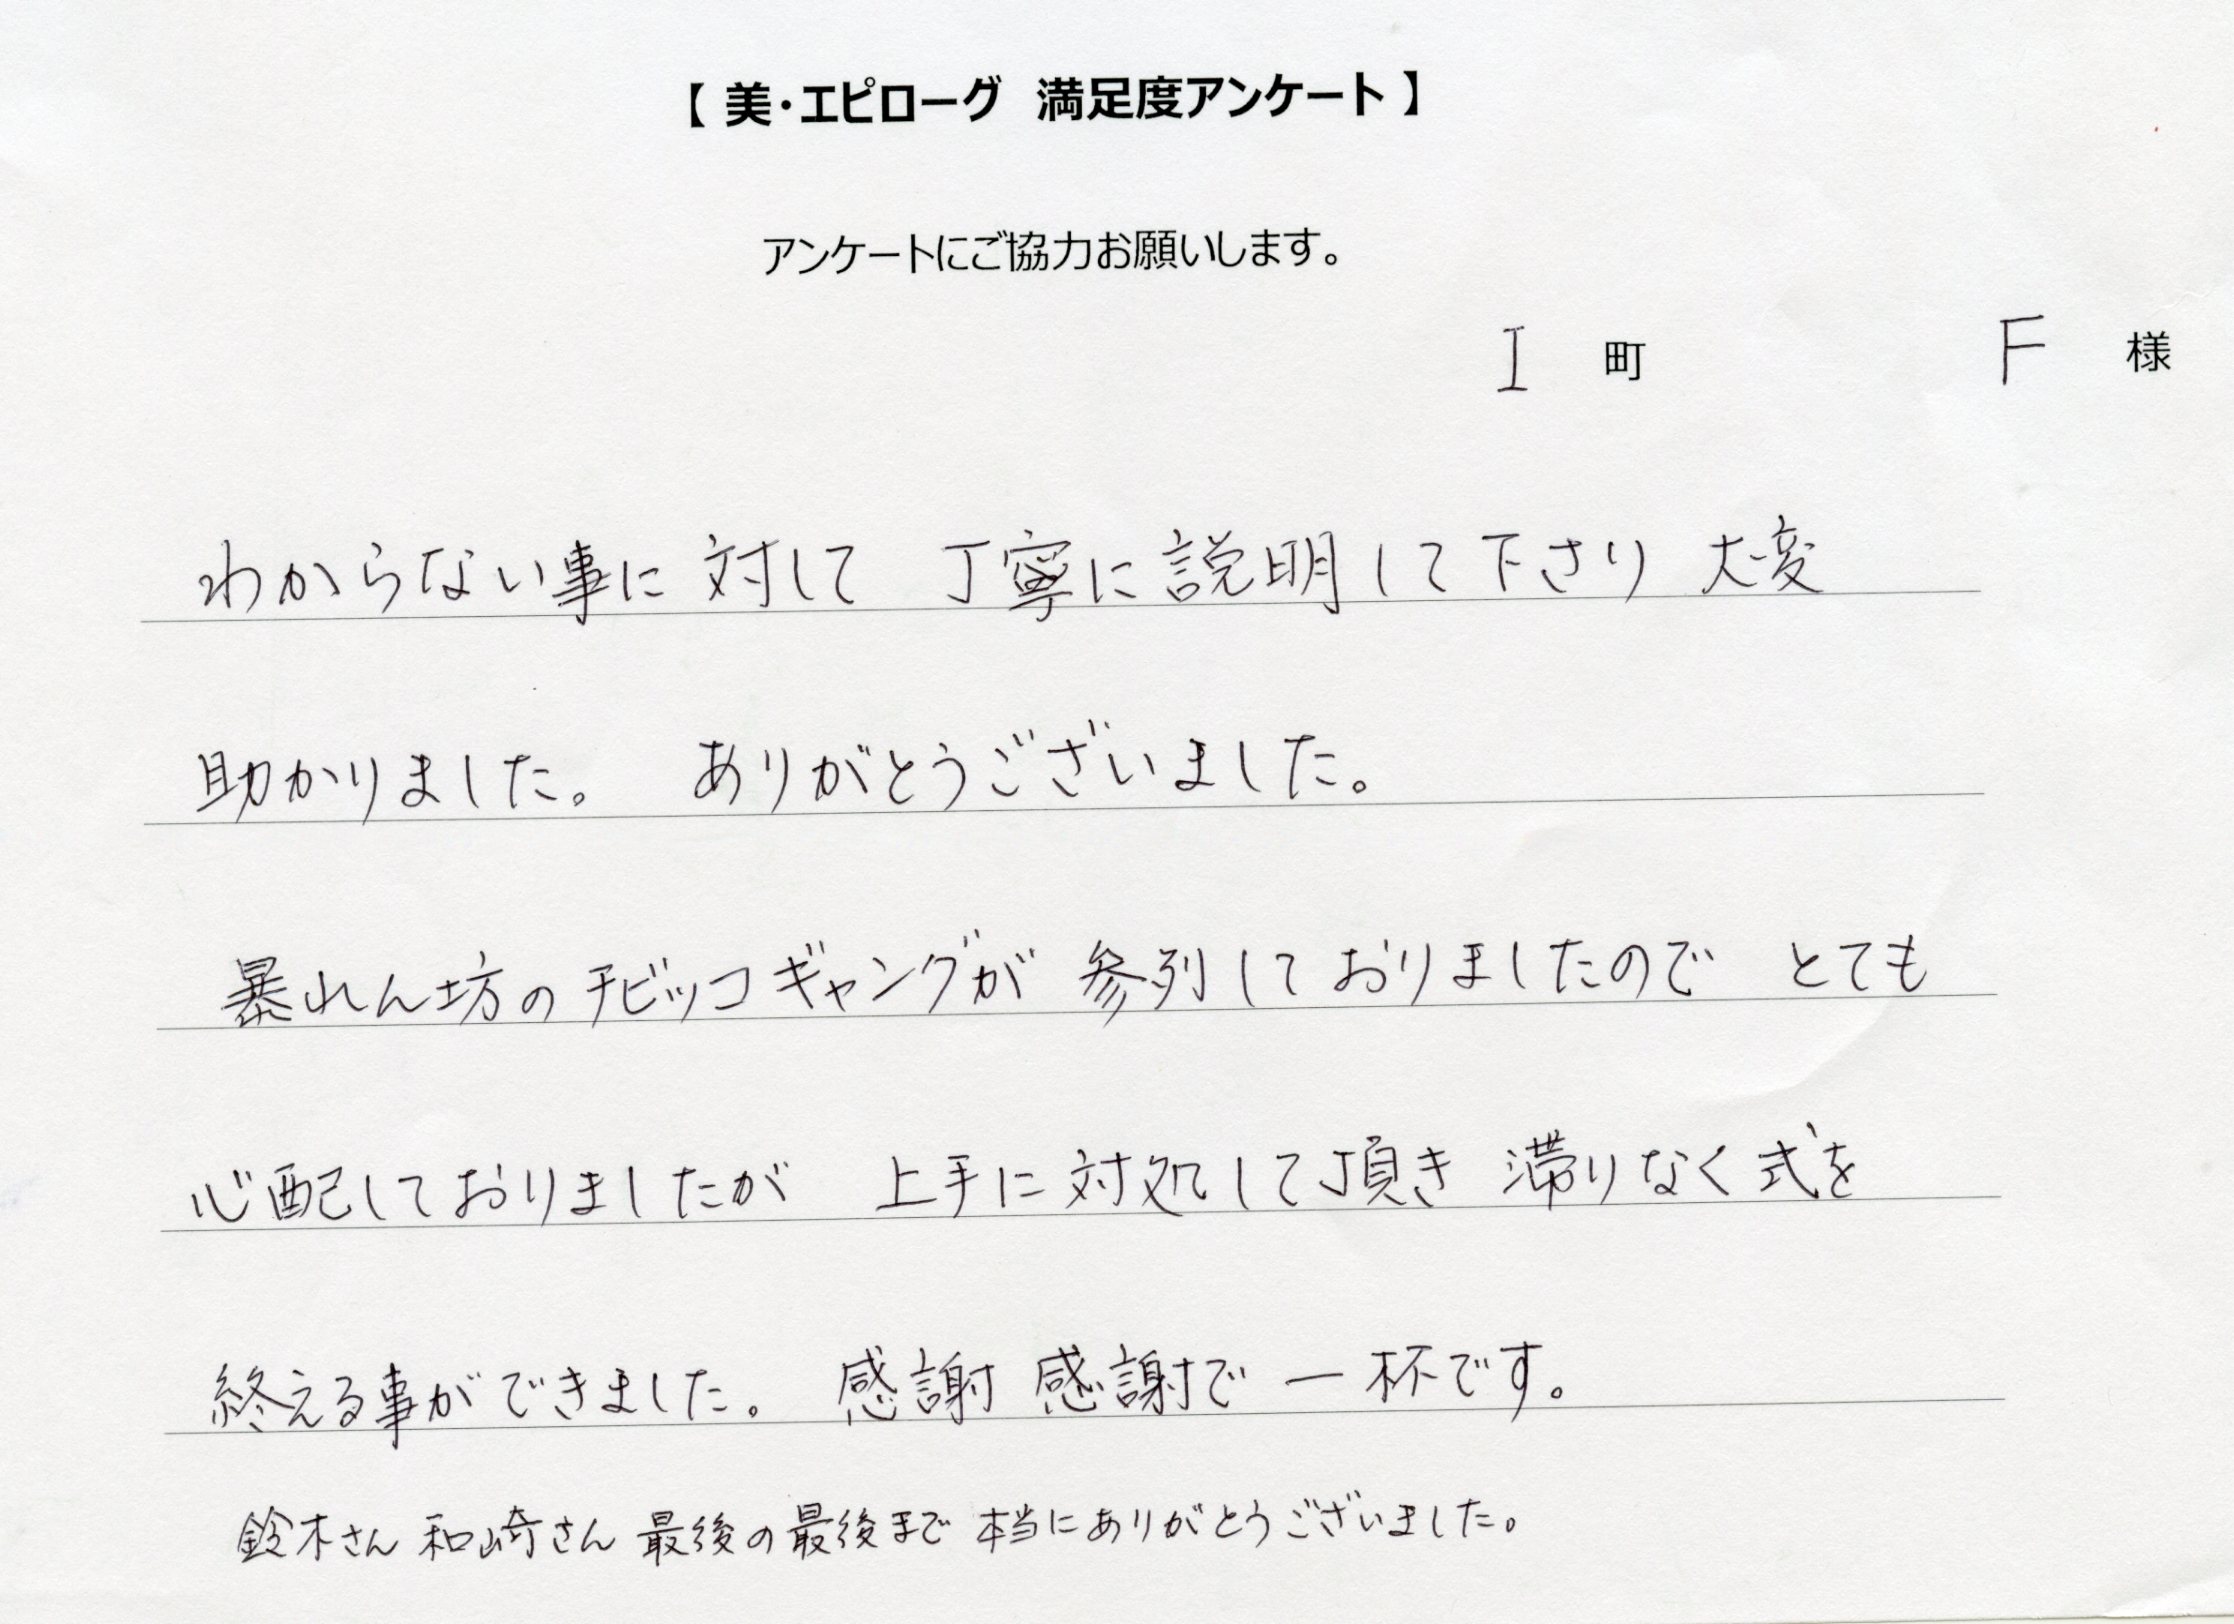 【 美・エピローグ　満足度アンケート 】
アンケートにご協力お願いします。
I 町　F 様
わからない事に 対して 丁寧に説明して下さり 大変
助かりました。 ありがとうございました。
暴れん坊のチビッコギャングが 参列しておりましたので とても
心配しておりましたが 上手に対処して頂き 滞りなく式を
終える事ができました。 感謝 感謝で 一杯です。
鈴木さん 和崎さん 最後の最後まで 本当にありがとうございました。